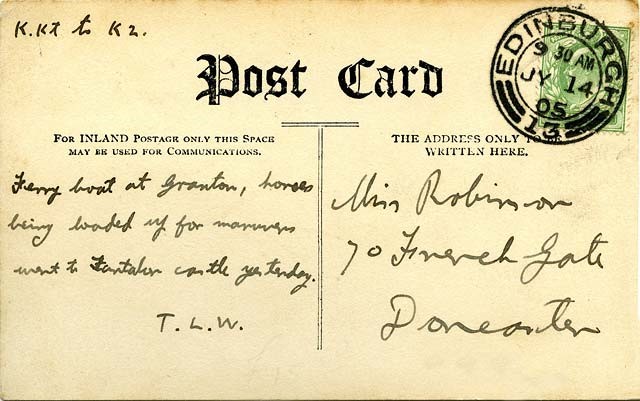 K.Kt to K2.
Post Card
FOR INLAND POSTAGE ONLY THIS SPACE
MAY BE USED FOR COMMUNICATIONS.
THE ADDRESS ONLY TO BE
WRITTEN HERE.
EDINBURGH
9 30 AM
JY 14
05
13
Ferry boat at Granton, horses
being loaded up for manuvers
went to Tantalon castle yesterday.
T.L.W.
Miss Robinson
70 French Gate
Doncaster